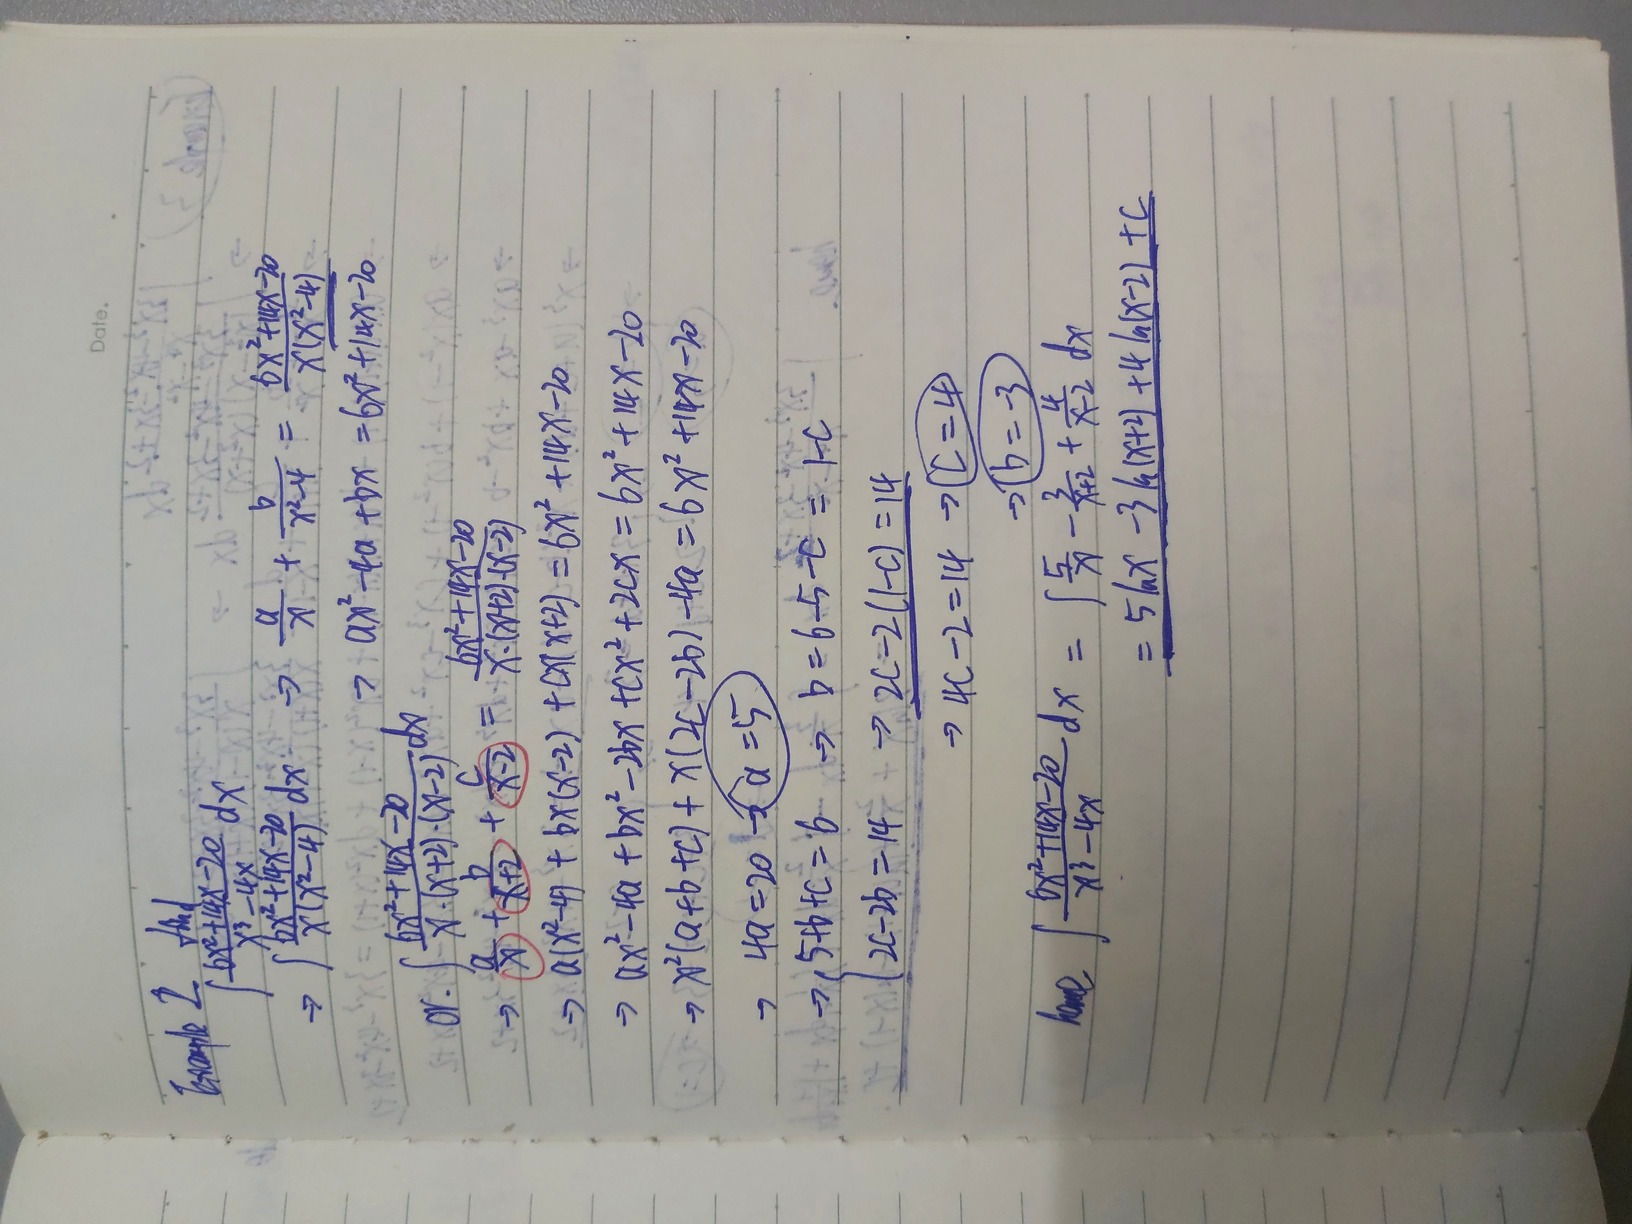 Date.
Example 2 find
∫ (6x²+14x-20)/(x³-4x) dx
→ ∫ (6x²+14x-20)/(x(x²-4)) dx → a/x + b/(x²-4) = (6x²+14x-20)/(x(x²-4))
→ ax²-4a+bx = 6x²+14x-20
or. ∫ (6x²+14x-20)/(x·(x+2)·(x-2)) dx
→ a/x + b/(x+2) + c/(x-2) = (6x²+14x-20)/(x·(x+2)·(x-2))
→ a(x²-4) + bx(x-2) + cx(x+2) = 6x²+14x-20
→ ax²-4a+bx²-2bx+cx²+2cx = 6x²+14x-20
→ x²(a+b+c) + x(2c-2b) -4a = 6x²+14x-20
→ 4a=20 → a=5
→ { 5+b+c=6 → b=6-5-c = 1-c
2c-2b=14 → 2c-2(1-c)=14
→ 4c-2=14 → c=4
→ b=-3
∫ (6x²+14x-20)/(x³-4x) dx = ∫ 5/x - 3/(x+2) + 4/(x-2) dx
= 5lnx -3ln(x+2) +4ln(x-2) +c